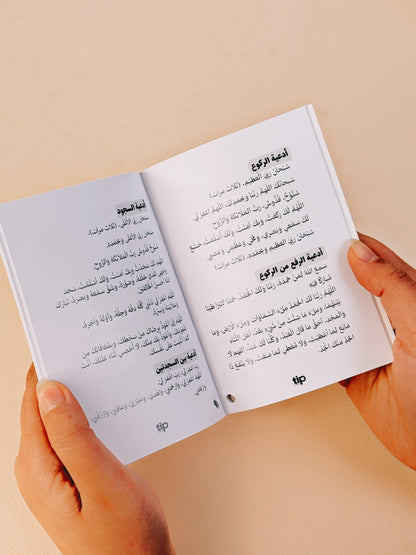 أدعية الركوع
سُبْحَانَ رَبِّيَ الْعَظِيمِ. (ثلاث مرات)
سُبْحَانَكَ اللَّهُمَّ رَبَّنَا وَبِحَمْدِكَ، اللَّهُمَّ اغْفِرْ لِي.
سُبُّوحٌ قُدُّوسٌ، رَبُّ الْمَلَائِكَةِ وَالرُّوحِ.
اللَّهُمَّ لَكَ رَكَعْتُ، وَبِكَ آمَنْتُ، وَلَكَ أَسْلَمْتُ، خَشَعَ
لَكَ سَمْعِي وَبَصَرِي، وَمُخِّي وَعَظْمِي وَعَصَبِي.
سُبْحَانَ رَبِّيَ الْعَظِيمِ وَبِحَمْدِهِ. (ثلاث مرات)
أدعية الرفع من الركوع
سَمِعَ اللَّهُ لِمَنْ حَمِدَهُ، رَبَّنَا وَلَكَ الْحَمْدُ، حَمْدًا كَثِيرًا طَيِّبًا
مُبَارَكًا فِيهِ.
اللَّهُمَّ رَبَّنَا لَكَ الْحَمْدُ مِلْءَ السَّمَاوَاتِ وَمِلْءَ الْأَرْضِ، وَمَا
بَيْنَهُمَا، وَمِلْءَ مَا شِئْتَ مِنْ شَيْءٍ بَعْدُ، أَهْلَ الثَّنَاءِ
وَالْمَجْدِ، أَحَقُّ مَا قَالَ الْعَبْدُ، وَكُلُّنَا لَكَ عَبْدٌ، اللَّهُمَّ لَا
مَانِعَ لِمَا أَعْطَيْتَ، وَلَا مُعْطِيَ لِمَا مَنَعْتَ، وَلَا يَنْفَعُ ذَا
الْجَدِّ مِنْكَ الْجَدُّ.
tip
أدعية السجود
سُبْحَانَ رَبِّيَ الْأَعْلَى. (ثلاث مرات)
سُبْحَانَ رَبِّيَ الْأَعْلَى وَبِحَمْدِهِ.
سُبُّوحٌ قُدُّوسٌ رَبُّ الْمَلَائِكَةِ وَالرُّوحِ.
اللَّهُمَّ لَكَ سَجَدْتُ، وَبِكَ آمَنْتُ، وَلَكَ أَسْلَمْتُ، سَجَدَ
وَجْهِي لِلَّذِي خَلَقَهُ وَصَوَّرَهُ، وَشَقَّ سَمْعَهُ وَبَصَرَهُ، تَبَارَكَ
اللَّهُ أَحْسَنُ الْخَالِقِينَ.
اللَّهُمَّ اغْفِرْ لِي ذَنْبِي كُلَّهُ، دِقَّهُ وَجِلَّهُ، وَأَوَّلَهُ وَآخِرَهُ،
وَعَلَانِيَتَهُ وَسِرَّهُ.
اللَّهُمَّ إِنِّي أَعُوذُ بِرِضَاكَ مِنْ سَخَطِكَ، وَبِمُعَافَاتِكَ مِنْ
عُقُوبَتِكَ، وَأَعُوذُ بِكَ مِنْكَ، لَا أُحْصِي ثَنَاءً عَلَيْكَ، أَنْتَ
كَمَا أَثْنَيْتَ عَلَى نَفْسِكَ.
أدعية بين السجدتين
رَبِّ اغْفِرْ لِي، رَبِّ اغْفِرْ لِي.
اللَّهُمَّ اغْفِرْ لِي، وَارْحَمْنِي، وَاهْدِنِي، وَاجْبُرْنِي، وَعَافِنِي، وَارْزُقْنِي،
وَارْفَعْنِي.
tip